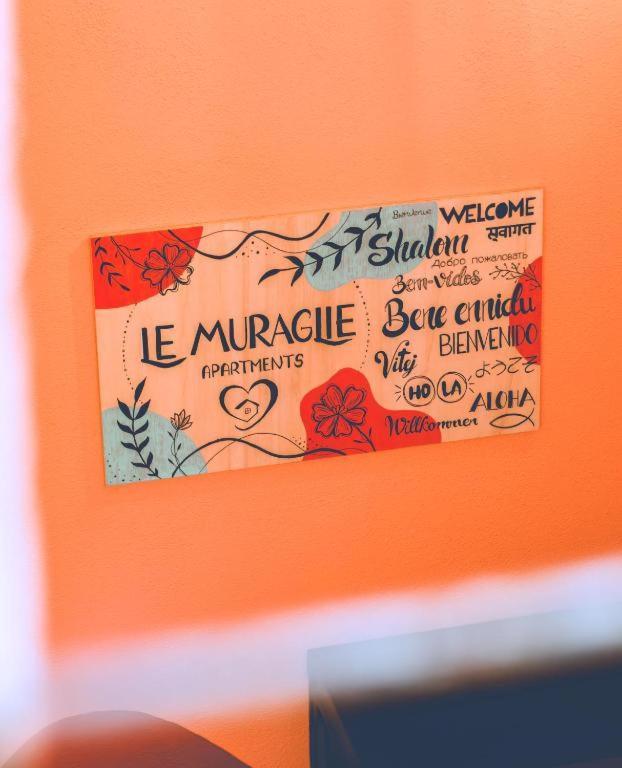 LE MURAGLIE
APARTMENTS
Bienvenue
WELCOME
स्वागत
Shalom
Добро пожаловать
Bem-vidos
Bene ennidu
BIENVENIDO
Vitej
ようこそ
HO LA
ALOHA
Willkommen